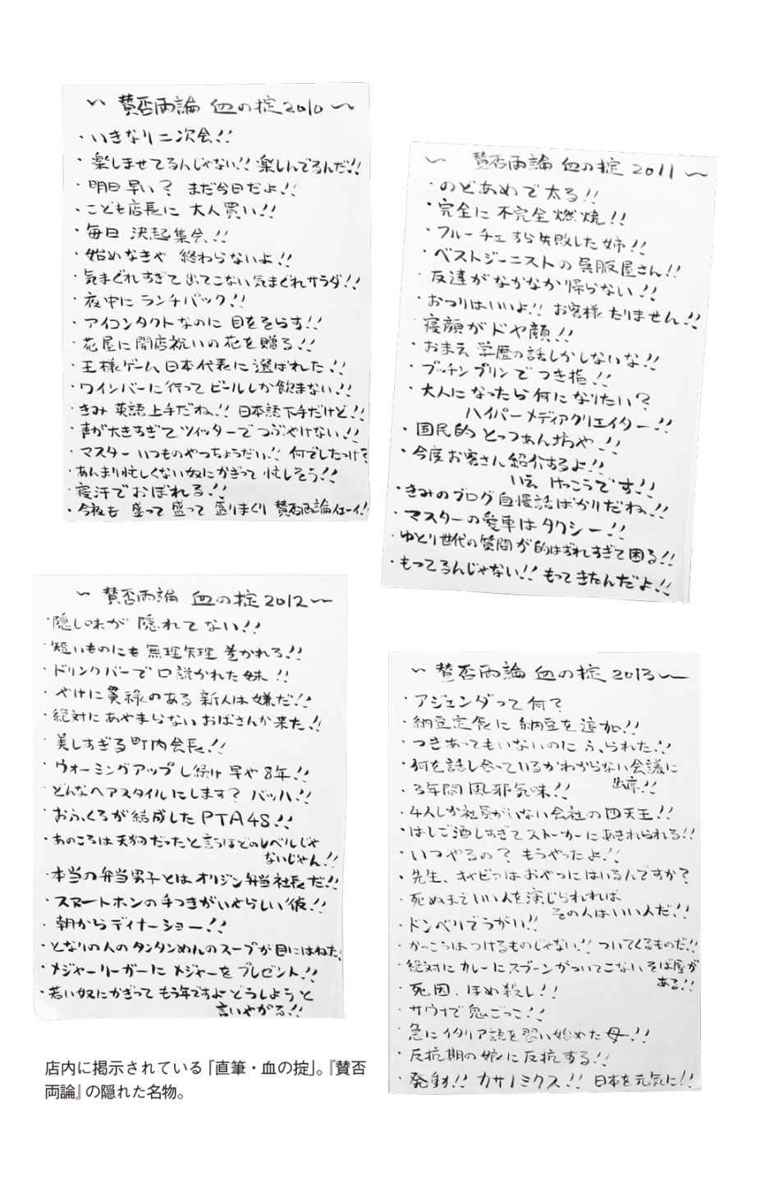 〜 賛否両論 血の掟2010 〜
・いきなり二次会!!
・楽しませてるんじゃない!! 楽しんでるんだ!!
・明日早い? まだ今日だよ!!
・こども店長に 大人買い!!
・毎日 決起集会!!
・始めなきゃ 終わらないよ!!
・気まぐれすぎて 出てこない気まぐれサラダ!!
・夜中に ランチパック!!
・アイコンタクトなのに 目をそらす!!
・花屋に開店祝いの花を贈る!!
・王様ゲーム 日本代表に選ばれた!!
・ワインバーに行って ビールしか飲まない!!
・きみ 英語上手だね!! 日本語下手だけど!!
・声が大きすぎて ツイッターで つぶやけない!!
・マスター いつものやつちょうだい!! 何でしたっけ?
・あんまり忙しくない奴にかぎって 忙しそう!!
・寝汗でおぼれる!!
・今夜も 盛って 盛って 盛りまくり 賛否両論イェーイ!!
〜 賛否両論 血の掟 2011 〜
・のどあめで 太る!!
・完全に 不完全燃焼!!
・フルーチェすら失敗した 姉!!
・ベストジーニストの 呉服屋さん!!
・友達がなかなか帰らない!!
・おつりはいいよ!! お客様 たりません!!
・寝顔がドヤ顔!!
・おまえ 学歴の話しかしないな!!
・プッチンプリンで つき指!!
・大人になったら何になりたい?
ハイパーメディアクリエイター!!
・国民的 とっつあん坊や!!
・今度お客さん紹介するよ!!
いえ けっこうです!!
・きみのブログ自慢話ばかりだね!!
・マスターの愛車はタクシー!!
・ゆとり世代の質問が的はずれすぎて困る!!
・もってるんじゃない!! もってきたんだよ!!
〜 賛否両論 血の掟2012〜
・隠し味が 隠れてない!!
・短いものにも 無理矢理 巻かれる!!
・ドリンクバーで口説かれた妹!!
・やけに貫禄のある 新人は嫌だ!!
・絶対にあやまらない おばさんが来た!!
・美しすぎる町内会長!!
・ウォーミングアップし続け 早や8年!!
・どんなヘアスタイルにします? バッハ!!
・おふくろが結成した PTA48!!
・あのころは天狗だったと言うほどのレベルじゃ
ないじゃん!!
・本当の弁当男子とは オリジン弁当社長だ!!
・スマートホンの手つきがいやらしい彼!!
・朝からディナーショー!!
・となりの人のタンタンめんのスープが目にはねた!
・メジャーリーガーに メジャーを プレゼント!!
・若い奴にかぎって もう年ですよ どうしようと
言いやがる!!
〜 賛否両論 血の掟 2013 〜
・アジェンダって何?
・納豆定食に 納豆を追加!!
・つきあってもいないのに ふられた!!
・何を話し合っているかわからない会議に
出席!!
・3年間 風邪気味!!
・4人しか社員がいない会社の四天王!!
・はしご酒しすぎて ストーカーに あきれられる!!
・いつやるの? もうやったよ!!
・先生、キャビアは おやつにはいるんですか?
・死ぬまで いい人を演じられれば
その人はいい人だ!!
・ドンペリでうがい!!
・かっこうはつけるものじゃない!! ついてくるものだ!!
・絶対に カレーにスプーンがついてこない そば屋が
ある!!
・死因、ほめ殺し!!
・サウナで鬼ごっこ!!
・急にイタリア語を習い始めた母!!
・反抗期の娘に反抗する!!
・発射!! カサノミクス!! 日本を元気に!!
店内に掲示されている「直筆・血の掟」。『賛否
両論』の隠れた名物。